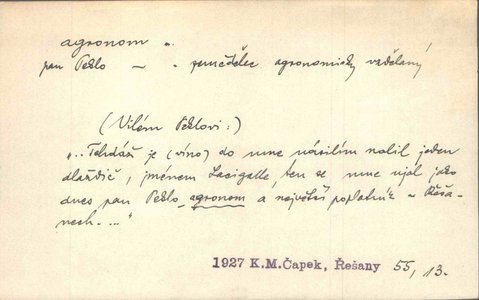 agronom „.
pan Peklo — „ zemědělec agronomicky vzdělaný
(Vilém Peklovi:)
„.. Tehdáž je (víno) do mne násilím nalil jeden
dlaždič, jménem Lacigalle, ten se mne ujal jako
dnes pan Peklo, agronom a největší poplatník v Řeša-
nech. ..."
1927 K.M.Čapek, Řešany 55, 13.